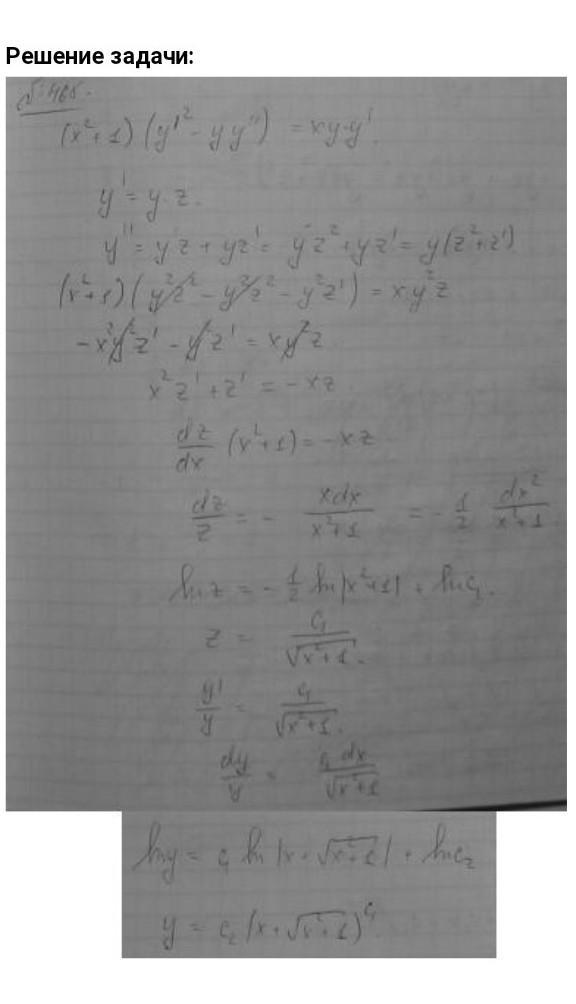 Решение задачи:
№ 466.
(x²+1)(y'² - yy'') = xy·y'.
y' = y·z.
y'' = y'z + yz' = yz² + yz' = y(z²+z')
(x²+1)(y²z² - y²z² - y²z') = xy²z
-x²y²z' - y²z' = xy²z
x²z' + z' = -xz
dz/dx (x²+1) = -xz
dz/z = - xdx/(x²+1) = -1/2 dx²/(x²+1)
ln z = -1/2 ln|x²+1| + ln c₁.
z = c₁/√(x²+1).
y'/y = c₁/√(x²+1).
dy/y = c₁ dx/√(x²+1)
ln y = c₁ ln|x+√(x²+1)| + ln c₂
y = c₂(x+√(x²+1))^c₁.